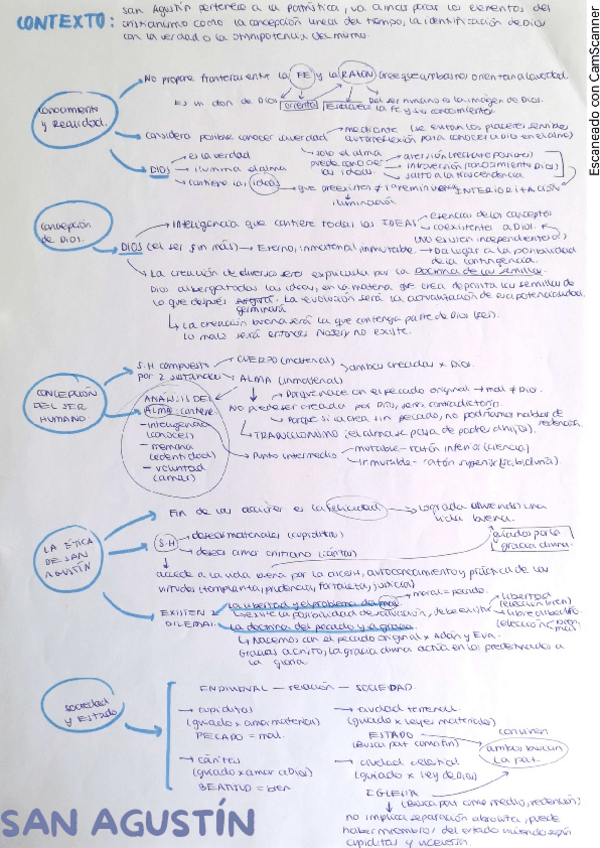 CONTEXTO: San Agustín pertenece a la Patrística, va a incorporar los elementos del
cristianismo como la concepción lineal del tiempo, la identificación de Dios
con la verdad o la omnipotencia del mismo.
Escaneado con CamScanner
Conocimiento
y Realidad.
No propone fronteras entre la FE y la RAZÓN
Es un don de Dios. orienta
Del ser humano es la imagen de Dios.
considera posible conocer la verdad
DIOS
es la verdad
ilumina el alma
contiene las ideas
solo el alma
puede conocer
las ideas.
salto a la trascendencia
INTERIORIZACIÓN
iluminación
Concepción
de Dios.
Inteligencia que contiene todas las IDEAS
esencias de los conceptos
coexistentes a Dios.
(no existen independientes)
DIOS (el ser sin más) Eterno, inmaterial, inmutable.
Da lugar a la posibilidad
de la contingencia.
La creación de diversos seres explicada por la Doctrina de las semillas.
Dios alberga todas las ideas, en la materia que crea deposita las semillas de
lo que después germinará. La evolución será la actualización de esa potencialidad.
La creación buena será la que contenga parte de Dios (ser).
lo malo será entonces No ser y no existe.
CONCEPCIÓN
DEL SER
HUMANO
S.H compuesto
por 2 sustancias
CUERPO (material)
ALMA (inmaterial)
ambas creadas x Dios.
Porque nace con el pecado original → mal ≠ Dios.
No puede ser creada por Dios, sería contradictorio.
Porque si la crea sin pecado, no podríamos hablar de
redención.
TRADUCIONISMO (el alma se pasa de padres a hijos).
Punto intermedio
mutable - razón inferior (ciencia)
inmutable - razón superior (sabiduría).
ANÁLISIS DEL
ALMA: contiene
- inteligencia
(conocer)
- memoria
(identidad)
- voluntad
(amar)
LA ÉTICA
DE SAN
AGUSTÍN
Fin de las acciones es la felicidad
lograda viviendo una
vida buena.
S.H
deseos materiales (cupiditas)
deseo amor cristiano (cáritas)
guiados por la
gracia divina.
accede a la vida buena por la ascesis, autoconocimiento y práctica de las
virtudes (templanza, prudencia, fortaleza, justicia)
EXISTEN 2
DILEMAS
La libertad y el problema del mal.
moral = pecado.
existe la posibilidad de salvación, debe existir
libertad
(elección bien)
libre albedrío.
La doctrina del pecado y la gracia
Nacemos con el pecado original x Adán y Eva.
Gracias a Cristo, la gracia divina actúa en los predestinados a
la gloria.
Sociedad
y Estado
INDIVIDUAL — relación — SOCIEDAD.
cupiditas
(guiado x amor material)
PECADO = mal.
ciudad terrenal.
(guiado x leyes materiales)
ESTADO
(Busca paz como fin)
cáritas
(guiado x amor a Dios)
BEATITUD = bien
ciudad celestial
(guiado x ley de Dios)
IGLESIA
(Busca paz como medio, redención)
conviven
ambas buscan
la paz.
no implica separación absoluta, puede
haber miembros del estado viviendo según
cupiditas y viceversa.
SAN AGUSTÍN